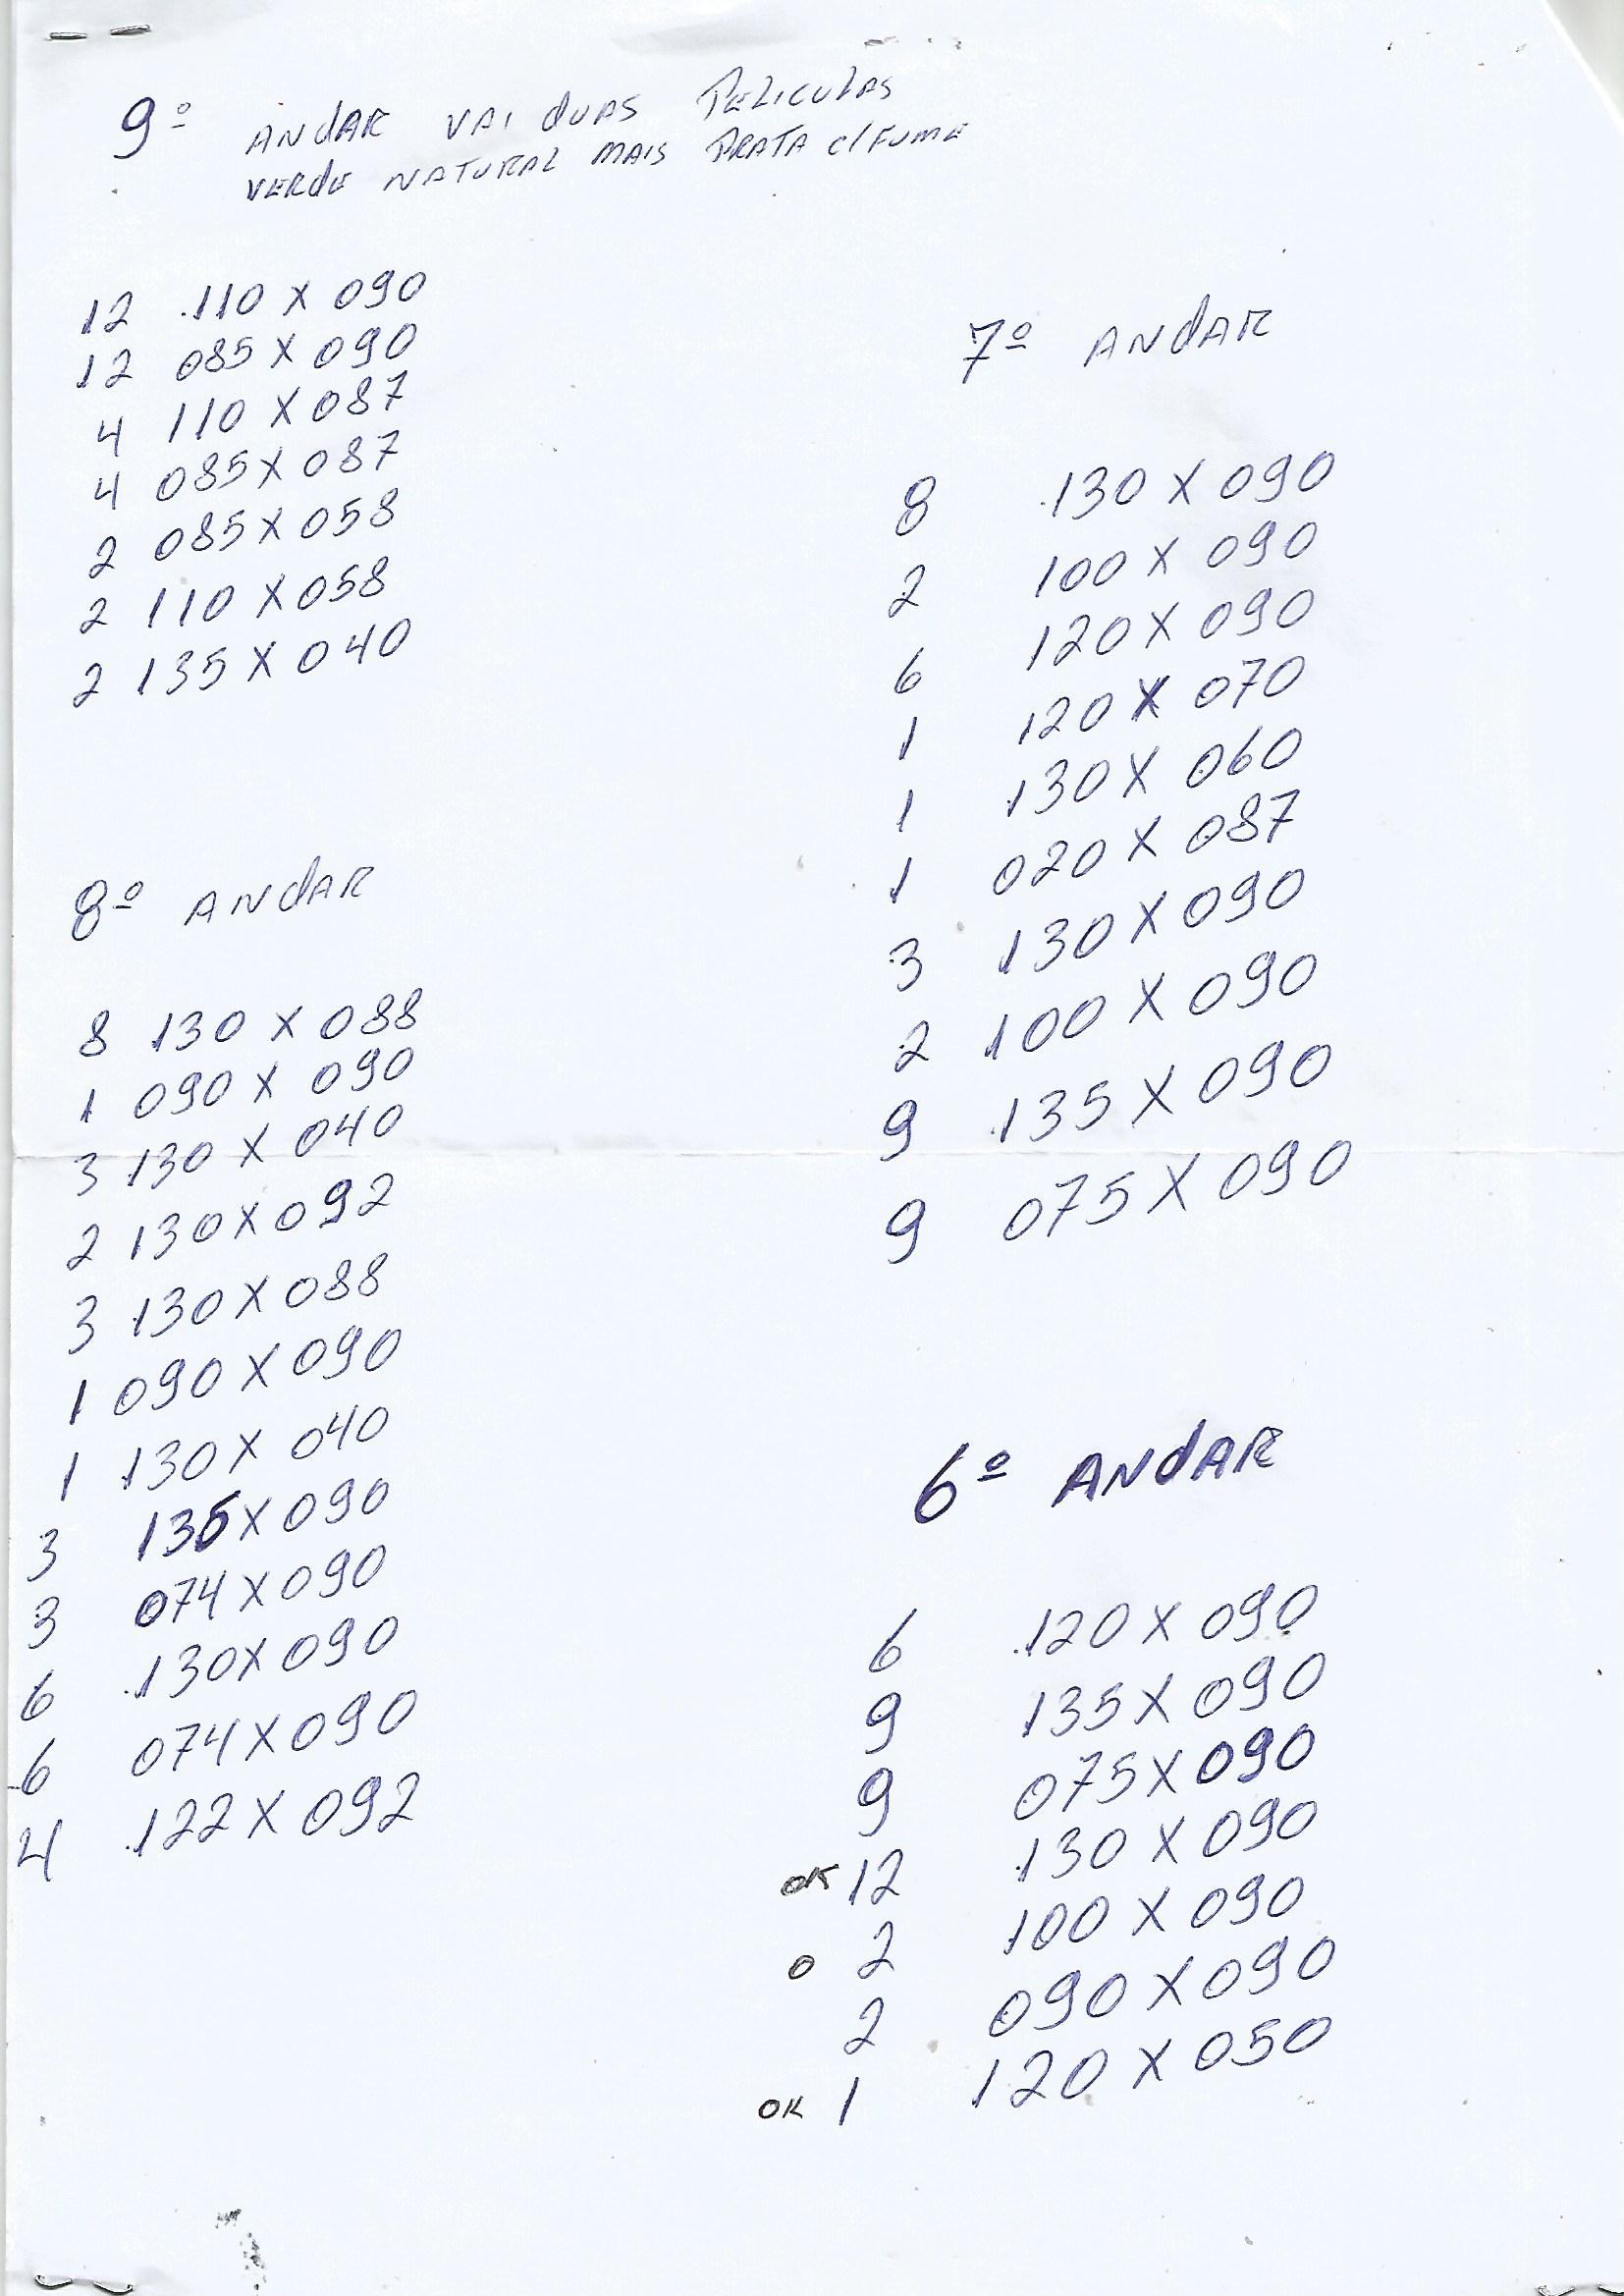 9º ANdAR VAI dUAS PELICULAS
VERdE NATURAL MAIS PRATA C/FUME
12 110 X 090
12 085 X 090
4 110 X 087
4 085 X 087
2 085 X 058
2 110 X 058
2 135 X 040
8º ANdAR
8 130 X 088
1 090 X 090
3 130 X 040
2 130 X 092
3 130 X 088
1 090 X 090
1 130 X 040
3 135 X 090
3 074 X 090
6 130 X 090
6 074 X 090
4 122 X 092
7º ANdAR
8 130 X 090
2 100 X 090
6 120 X 090
1 120 X 070
1 130 X 060
1 020 X 087
3 130 X 090
2 100 X 090
9 135 X 090
9 075 X 090
6º ANdAR
6 120 X 090
9 135 X 090
9 075 X 090
OK 12 130 X 090
0 2 100 X 090
2 090 X 090
OK 1 120 X 050